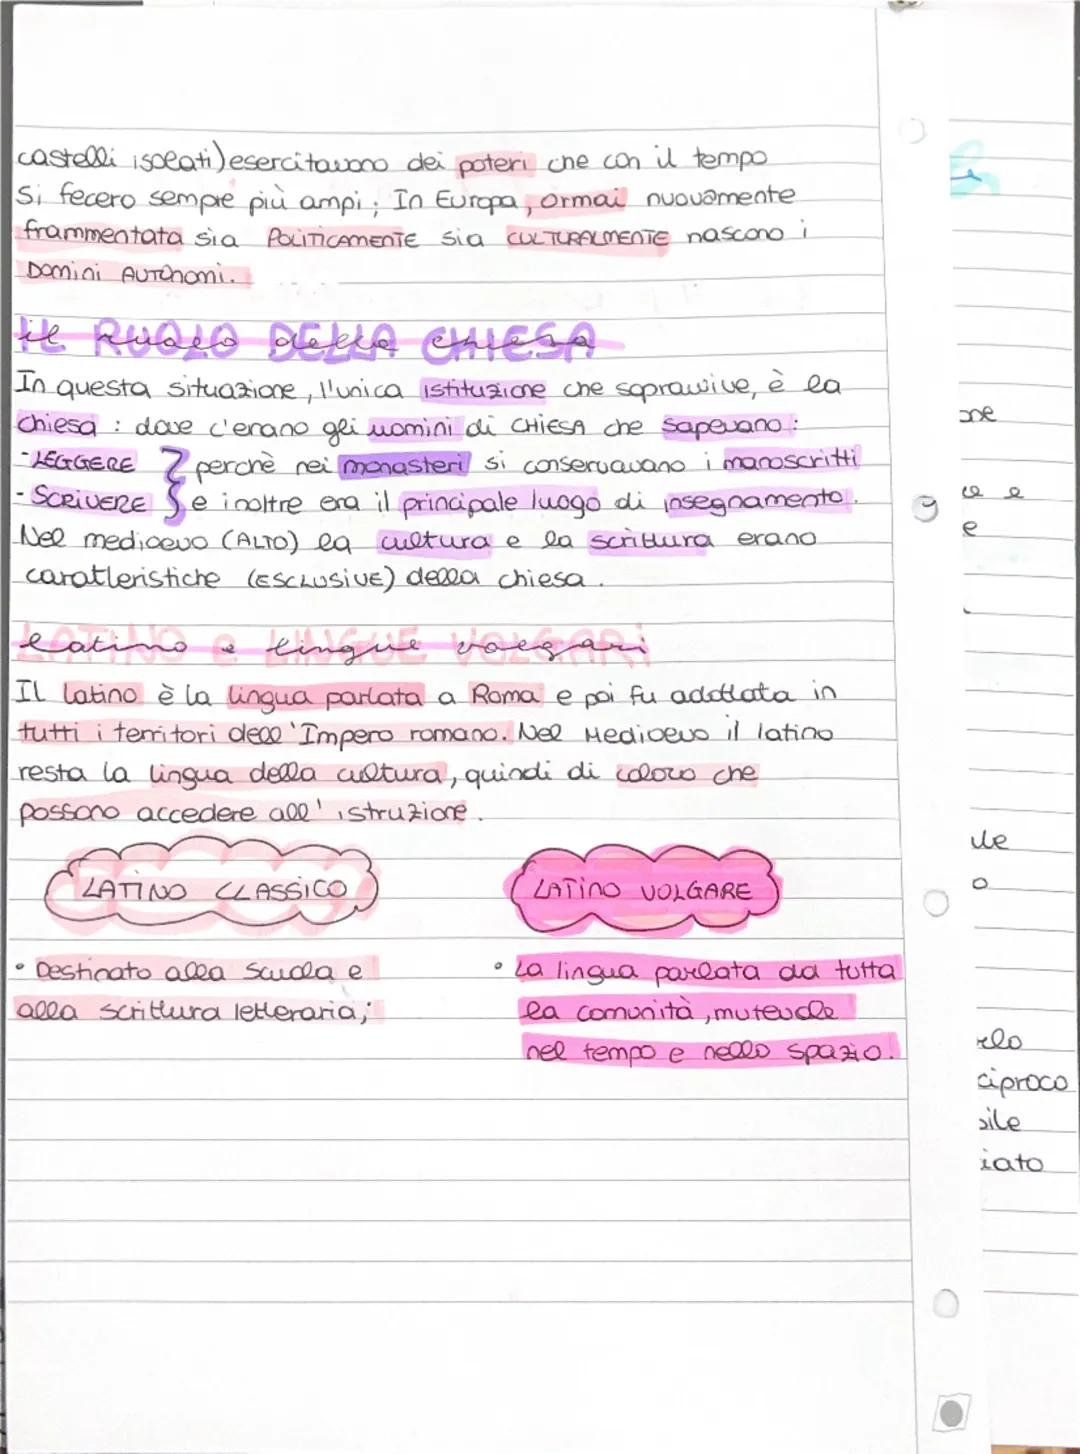 castelli isolati) esercitavano dei poteri che con il tempo
si fecero sempre più ampi; In Europa, ormai nuovamente
frammentata sia POLITICAMENTE sia CULTURALMENTE nascono i
Domini AUTONOMI.
il RUOLO DELLA CHIESA
In questa situazione, l'unica istituzione che soprawive, è la
chiesa : dove c'erano gli uomini di CHIESA che sapevano :
- LEGGERE } perchè nei monasteri si conservavano i manoscritti
- SCRIVERE } e inoltre era il principale luogo di insegnamento.
Nel medioevo (ALTO) la cultura e la scrittura erano
caratteristiche (ESCLUSIVE) della chiesa.
LATINO e LINGUE VOLGARI
IL latino è la lingua parlata a Roma e poi fu adottata in
tutti i territori dell'Impero romano. Nel Medioevo il latino
resta la lingua della cultura, quindi di coloro che
possono accedere all'istruzione.
LATINO CLASSICO
LATINO VOLGARE
• Destinato alla scuola e
alla scrittura letteraria;
• La lingua parlata da tutta
la comunità, mutevole
nel tempo e nello spazio.
one
ce e
e
ile
o
elo
ciproco
sile
iato